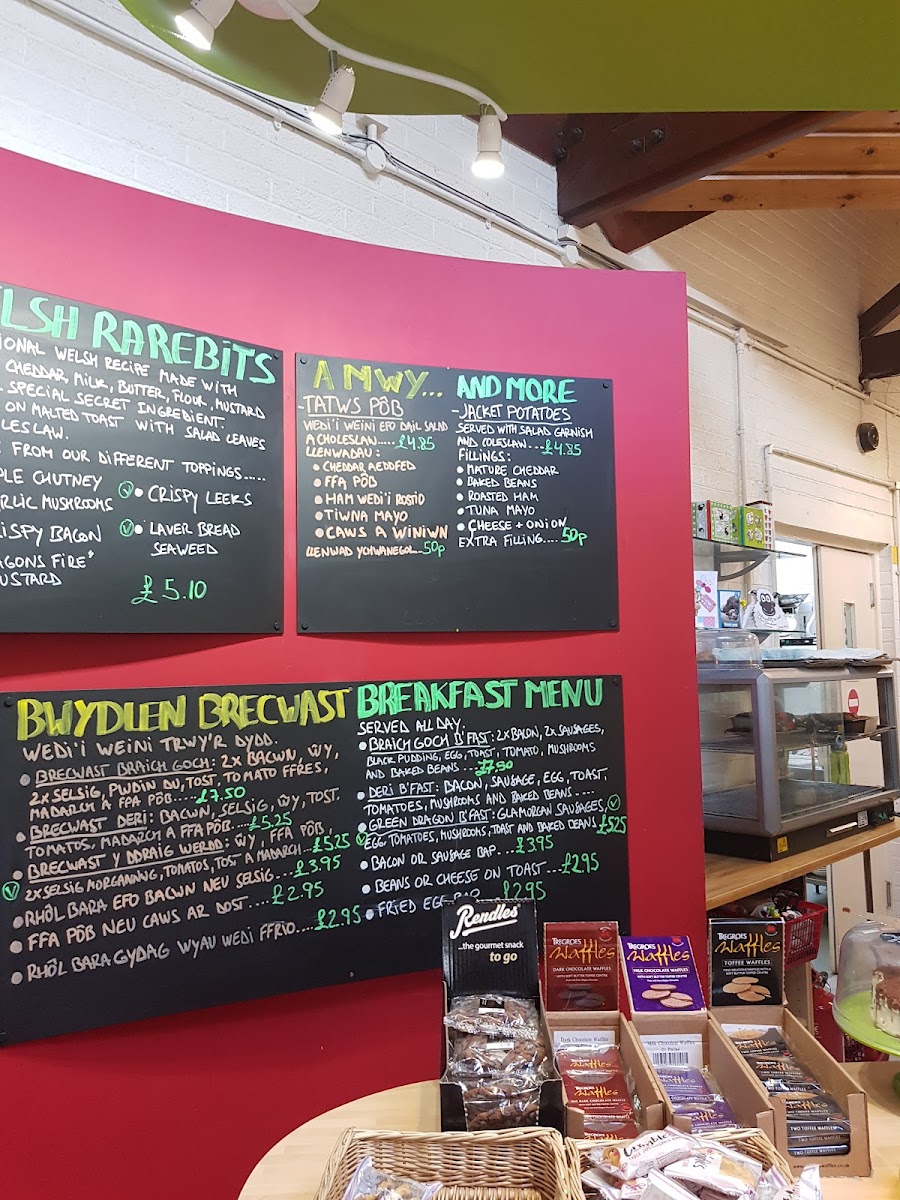 LSH RAREBiTS
IONAL WELSH RECIPE MADE WITH
CHEDDAR, MILK, BUTTER, FLOUR, MUSTARD
SPECIAL SECRET INGREDIENT.
ON MALTED TOAST WITH SALAD LEAVES
LESLAW.
FROM OUR DIFFERENT TOPPINGS.....
PLE CHUTNEY
ARLIC MUSHROOMS
RISPY BACON
AGONS FIRE"
MUSTARD
V • CRISPY LEEKS
V • LAVER BREAD
SEAWEED
£5.10
A MWY...
-TATWS PÔB
WEDI'I WEINI EFO DAIL SALAD
A CHOLESLAW.....£4.85
LLENWADAU:
• CHEDDAR AEDDFED
• FFA PÔB
• HAM WEDI'I ROSTIO
• TIWNA MAYO
• CAWS A WINIWN
LLENWAD YCHWANEGOL...50p
AND MORE
-JACKET POTATOES
SERVED WITH SALAD GARNISH
AND COLESLAW....£4.85
FILLINGS:
• MATURE CHEDDAR
• BAKED BEANS
• ROASTED HAM
• TUNA MAYO
• CHEESE + ONION
EXTRA FILLING.... 50p
BWYDLEN BRECWAST
WEDI'I WEINI TRWY'R DYDD.
• BRECWAST BRAICH GOCH: 2x BACWN, ŴY,
2x SELSIG, PWDIN DU, TOST, TOMATO FFRES,
MADARCH A FFA PÔB.....£7.50
• BRECWAST DERI: BACWN, SELSIG, ŴY, TOST.
TOMATOS, MADARCH A FFA PÔB....£5.25
• BRECWAST Y DDRAIG WERDD: ŴY, FFA PÔB,
V 2xSELSIG MORGANNWG, TOMATOS, TOST A MADARCH...£5.25
• RHÔL BARA EFO BACWN NEU SELSIG....£3.95
• FFA PÔB NEU CAWS AR DOST....£2.95
• RHÔL BARA GYDAG WYAU WEDI FFRIO....£2.95
BREAKFAST MENU
SERVED ALL DAY.
• BRAICH GOCH B'FAST: 2x BACON, 2x SAUSAGES,
BLACK PUDDING, EGG, TOAST, TOMATO, MUSHROOMS
AND BAKED BEANS ....£7.50
• DERI B'FAST: BACON, SAUSAGE, EGG, TOAST,
TOMATOES, MUSHROOMS AND BAKED BEANS ....
• GREEN DRAGON B'FAST: GLAMORGAN SAUSAGES, V
V EGG, TOMATOES, MUSHROOMS, TOAST AND BAKED BEANS £5.25
• BACON OR SAUSAGE BAP ....£3.95
• BEANS OR CHEESE ON TOAST....£2.95
• FRIED EGG BAP £2.95
Rendles
...the gourmet snack
to go
TREGROES
Waffles
DARK CHOCOLATE WAFFLES
TREGROES
Waffles
MILK CHOCOLATE WAFFLES
TREGROES
Waffles
TOFFEE WAFFLES
Dark Chocolate Waffles
Milk Chocolate Waffles
TWO TOFFEE WAFFLES